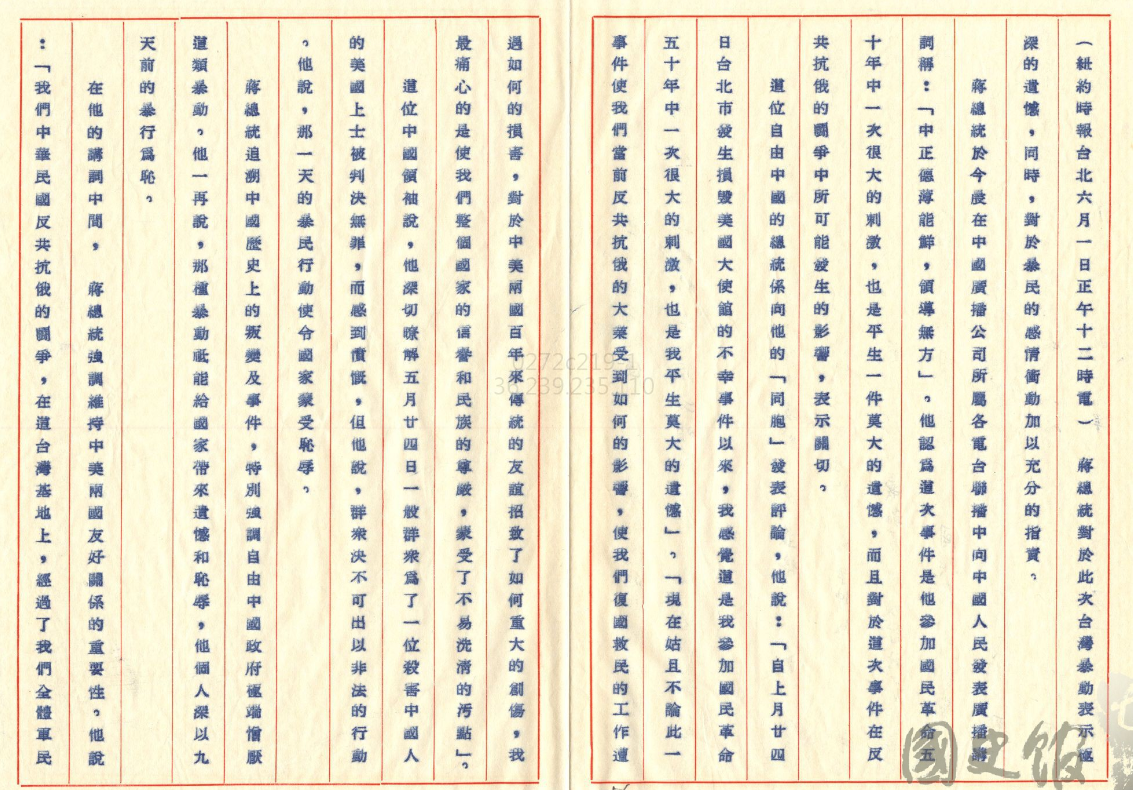 （紐約時報台北六月一日正午十二時電）　蔣總統對於此次台灣暴動表示極
深的遺憾，同時，對於暴民的感情衝動加以充分的指責。
蔣總統於今晨在中國廣播公司所屬各電台聯播中向中國人民發表廣播講
詞稱：「中正德薄能鮮，領導無方」。他認爲這次事件是他參加國民革命五
十年中一次很大的刺激，也是平生一件莫大的遺憾，而且對於這次事件在反
共抗俄的鬪爭中所可能發生的影響，表示關切。
這位自由中國的總統係向他的「同胞」發表評論，他說：「自上月廿四
日台北市發生損毀美國大使館的不幸事件以來，我感覺這是我參加國民革命
五十年中一次很大的刺激，也是我平生莫大的遺憾」。「現在姑且不論此一
事件使我們當前反共抗俄的大業受到如何的影響，使我們復國救民的工作遭
過如何的損害，對於中美兩國百年來傳統的友誼招致了如何重大的創傷，我
最痛心的是使我們整個國家的信譽和民族的尊嚴，蒙受了不易洗清的汚點」。
這位中國領袖說，他深切暸解五月廿四日一般群衆爲了一位殺害中國人
的美國上士被判決無罪，而感到憤慨，但他說，群衆決不可出以非法的行動
。他說，那一天的暴民行動使令國家蒙受恥辱。
蔣總統追溯中國歷史上的叛變及事件，特別強調自由中國政府極端憎厭
這類暴動。他一再說，那種暴動祇能給國家帶來遺憾和恥辱，他個人深以九
天前的暴行爲恥。
在他的講詞中間，　蔣總統強調維持中美兩國友好關係的重要性。他說
：「我們中華民國反共抗俄的鬪爭，在這台灣基地上，經過了我們全體軍民
0272c219-1
36.239.235.110
國史館